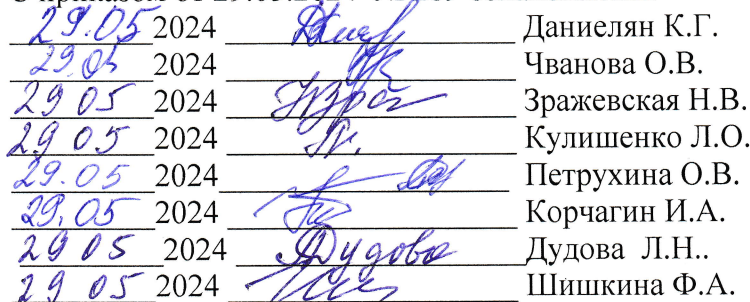 29.05 2024 Даниелян К.Г.
29.05 2024 Чванова О.В.
29 05 2024 Зражевская Н.В.
29 05 2024 Кулишенко Л.О.
29.05 2024 Петрухина О.В.
29.05 2024 Корчагин И.А.
29 05 2024 Дудова Дудова Л.Н..
29 05 2024 Шишкина Ф.А.